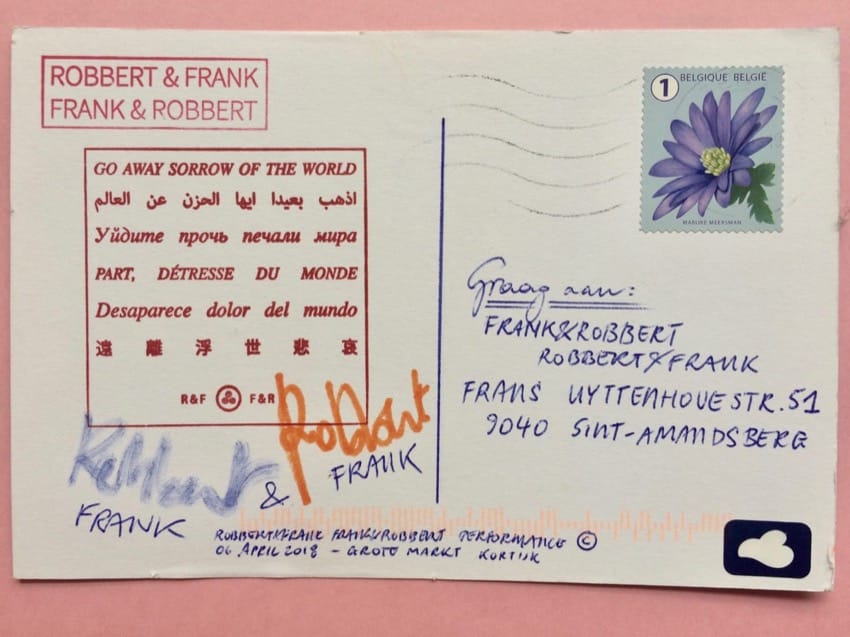 ROBBERT & FRANK
FRANK & ROBBERT
GO AWAY SORROW OF THE WORLD
اذهب بعيدا ايها الحزن عن العالم
Уйдите прочь печали мира
PART, DÉTRESSE DU MONDE
Desaparece dolor del mundo
遠離浮世悲哀
R&F F&R
Robbert
FRANK
&
Robbert
FRANK
ROBBERT&FRANK FRANK&ROBBERT PERFORMANCE ©
06 APRIL 2018 - GROTE MARKT KORTIJK
1 BELGIQUE BELGIË
MARIJKE MEERSMAN
Graag aan:
FRANK&ROBBERT
ROBBERT&FRANK
FRANS UYTTENHOVESTR. 51
9040 SINT-AMANDSBERG